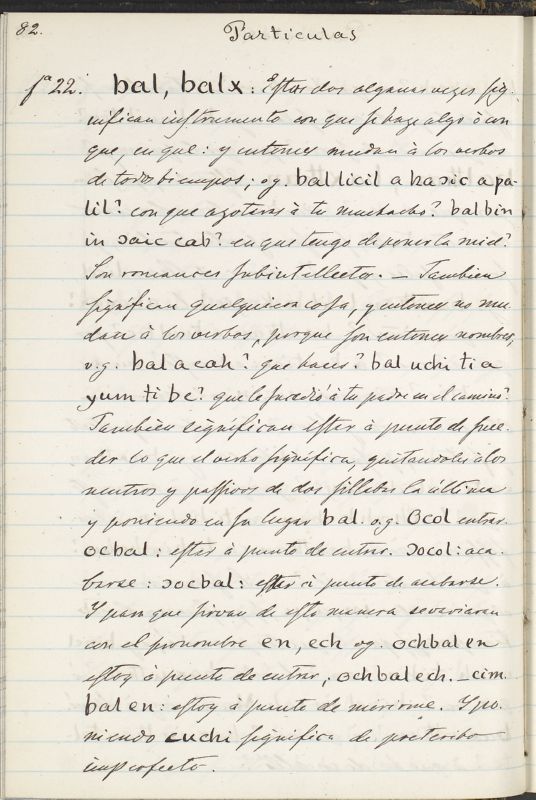 82.
Particulas
fª 22. bal, balx: Estas dos algunas vezes sig-
nifican instrumento con que se haze algo ò con
que, en que: y entonces mudan à los verbos
de todos tiempos; v.g. bal licil a haɔic a pa-
lil? con que açotaras à tu muchacho? balbin
in ɔaic cab? en que tengo de poner la miel?
Son romances subintellectos. – Tambien
significan qualquiera cosa, y entonces no mu-
dan à los verbos, porque son entonces nombres,
v.g. bal a cah? que haces? bal uchi ti a
yum ti be? que le sucediò à tu padre en el camino?
Tambien significan estar à punto de suce-
der lo que el verbo significa, quitandoles à los
neutros y passivos de dos sillabas la última
y poniendo en su lugar bal. v.g. Ocol entrar.
ocbal: estar à punto de entrar. ɔocol: aca-
barse: ɔocbal: estar à punto de acabarse.
Y para que sirvan de esta manera se variaran
con el pronombre en, ech v.g. ochbal en
estoy à punto de entrar, ochbal ech. – cim-
bal en: estoy à punto de morirme. Y po-
niendo cuchi significa de preterito
imperfecto.